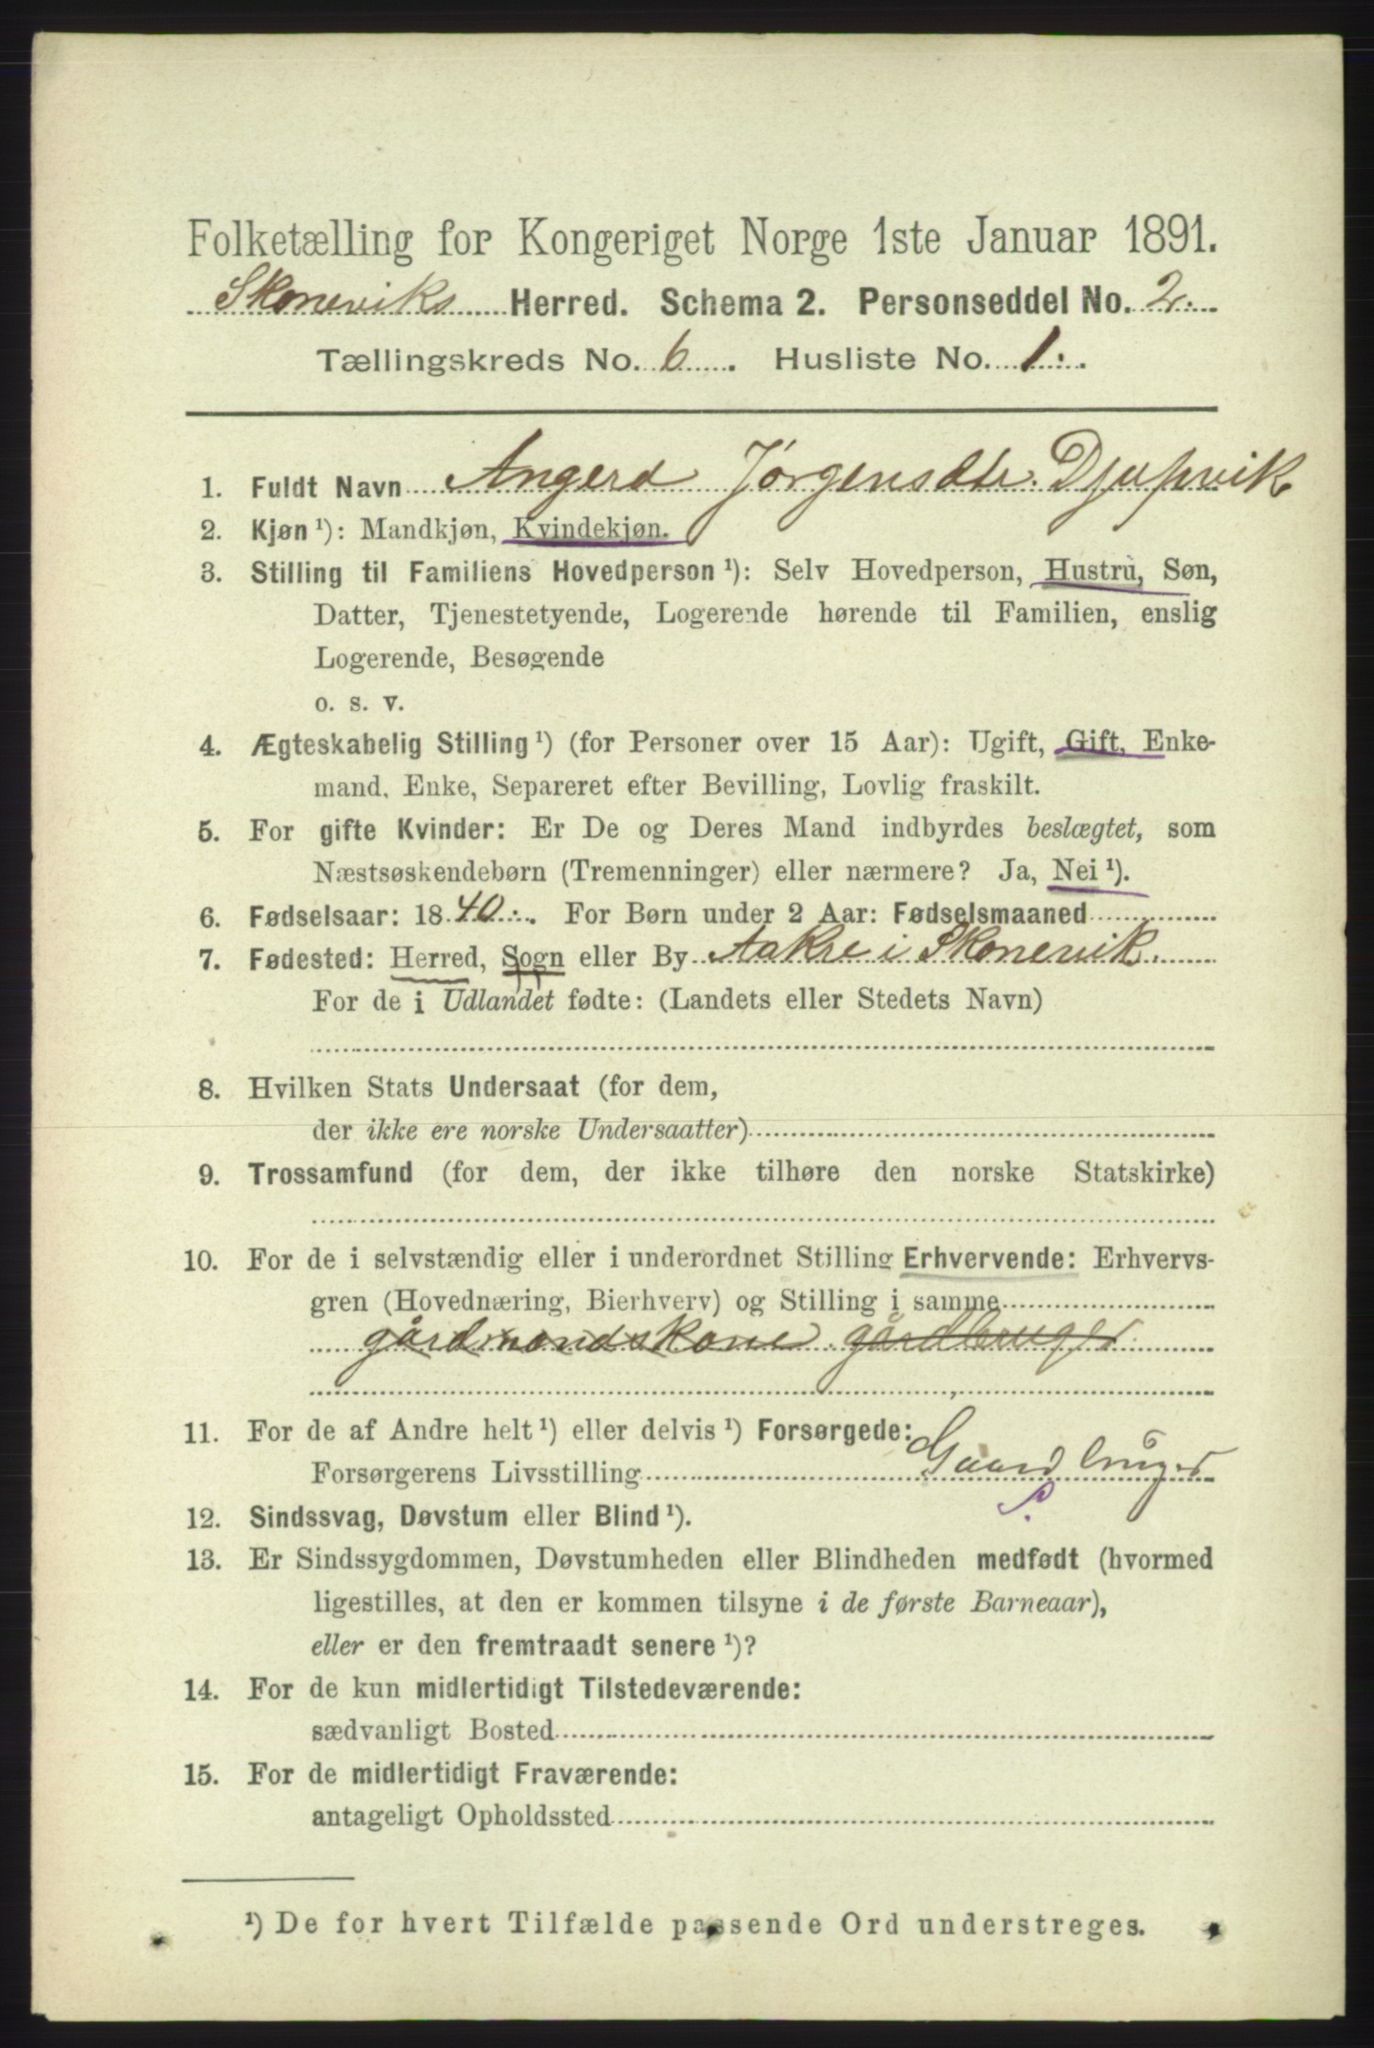 Folketælling for Kongeriget Norge 1ste Januar 1891.
Skoneviks Herred. Schema 2. Personseddel No. 2.
Tællingskreds No. 6. Husliste No. 1.
1. Fuldt Navn Angerd Jørgensdtr. Djupvik
2. Kjøn ¹): Mandkjøn, Kvindekjøn.
3. Stilling til Familiens Hovedperson ¹): Selv Hovedperson, Hustru, Søn,
Datter, Tjenestetyende, Logerende hørende til Familien, enslig
Logerende, Besøgende
o. s. v.
4. Ægteskabelig Stilling ¹) (for Personer over 15 Aar): Ugift, Gift, Enke-
mand, Enke, Separeret efter Bevilling, Lovlig fraskilt.
5. For gifte Kvinder: Er De og Deres Mand indbyrdes beslægtet, som
Næstsøskendebørn (Tremenninger) eller nærmere? Ja, Nei ¹).
6. Fødselsaar: 1840. For Børn under 2 Aar: Fødselsmaaned
7. Fødested: Herred, Sogn eller By Aakre i Skonevik.
For de i Udlandet fødte: (Landets eller Stedets Navn)
8. Hvilken Stats Undersaat (for dem,
der ikke ere norske Undersaatter)
9. Trossamfund (for dem, der ikke tilhøre den norske Statskirke)
10. For de i selvstændig eller i underordnet Stilling Erhvervende: Erhvervs-
gren (Hovednæring, Bierhverv) og Stilling i samme
gårdmandskone. gårdbruger.
11. For de af Andre helt ¹) eller delvis ¹) Forsørgede:
Forsørgerens Livsstilling Gaardbruger
S.
12. Sindssvag, Døvstum eller Blind ¹).
13. Er Sindssygdommen, Døvstumheden eller Blindheden medfødt (hvormed
ligestilles, at den er kommen tilsyne i de første Barneaar),
eller er den fremtraadt senere ¹)?
14. For de kun midlertidigt Tilstedeværende:
sædvanligt Bosted
15. For de midlertidigt Fraværende:
antageligt Opholdssted
¹) De for hvert Tilfælde passende Ord understreges.